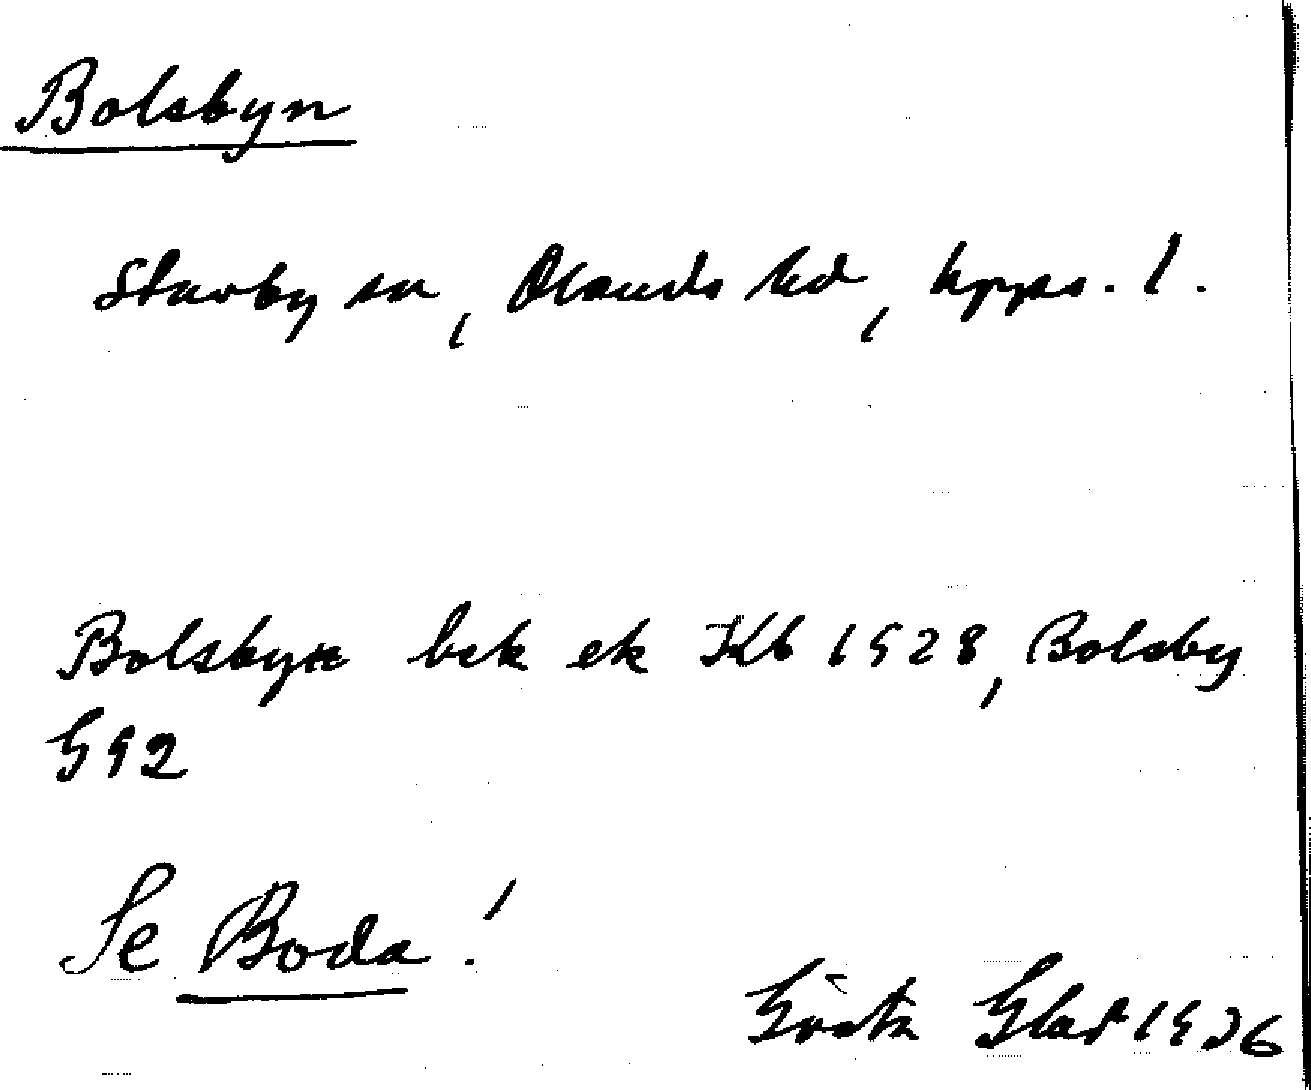 Bolsbyn
Stavby sn, Olands hd, Upps. l.
Bolsbyn bek ek Kb 1928, Bolsby
G92
Se Boda!
Gösta Glad 1936